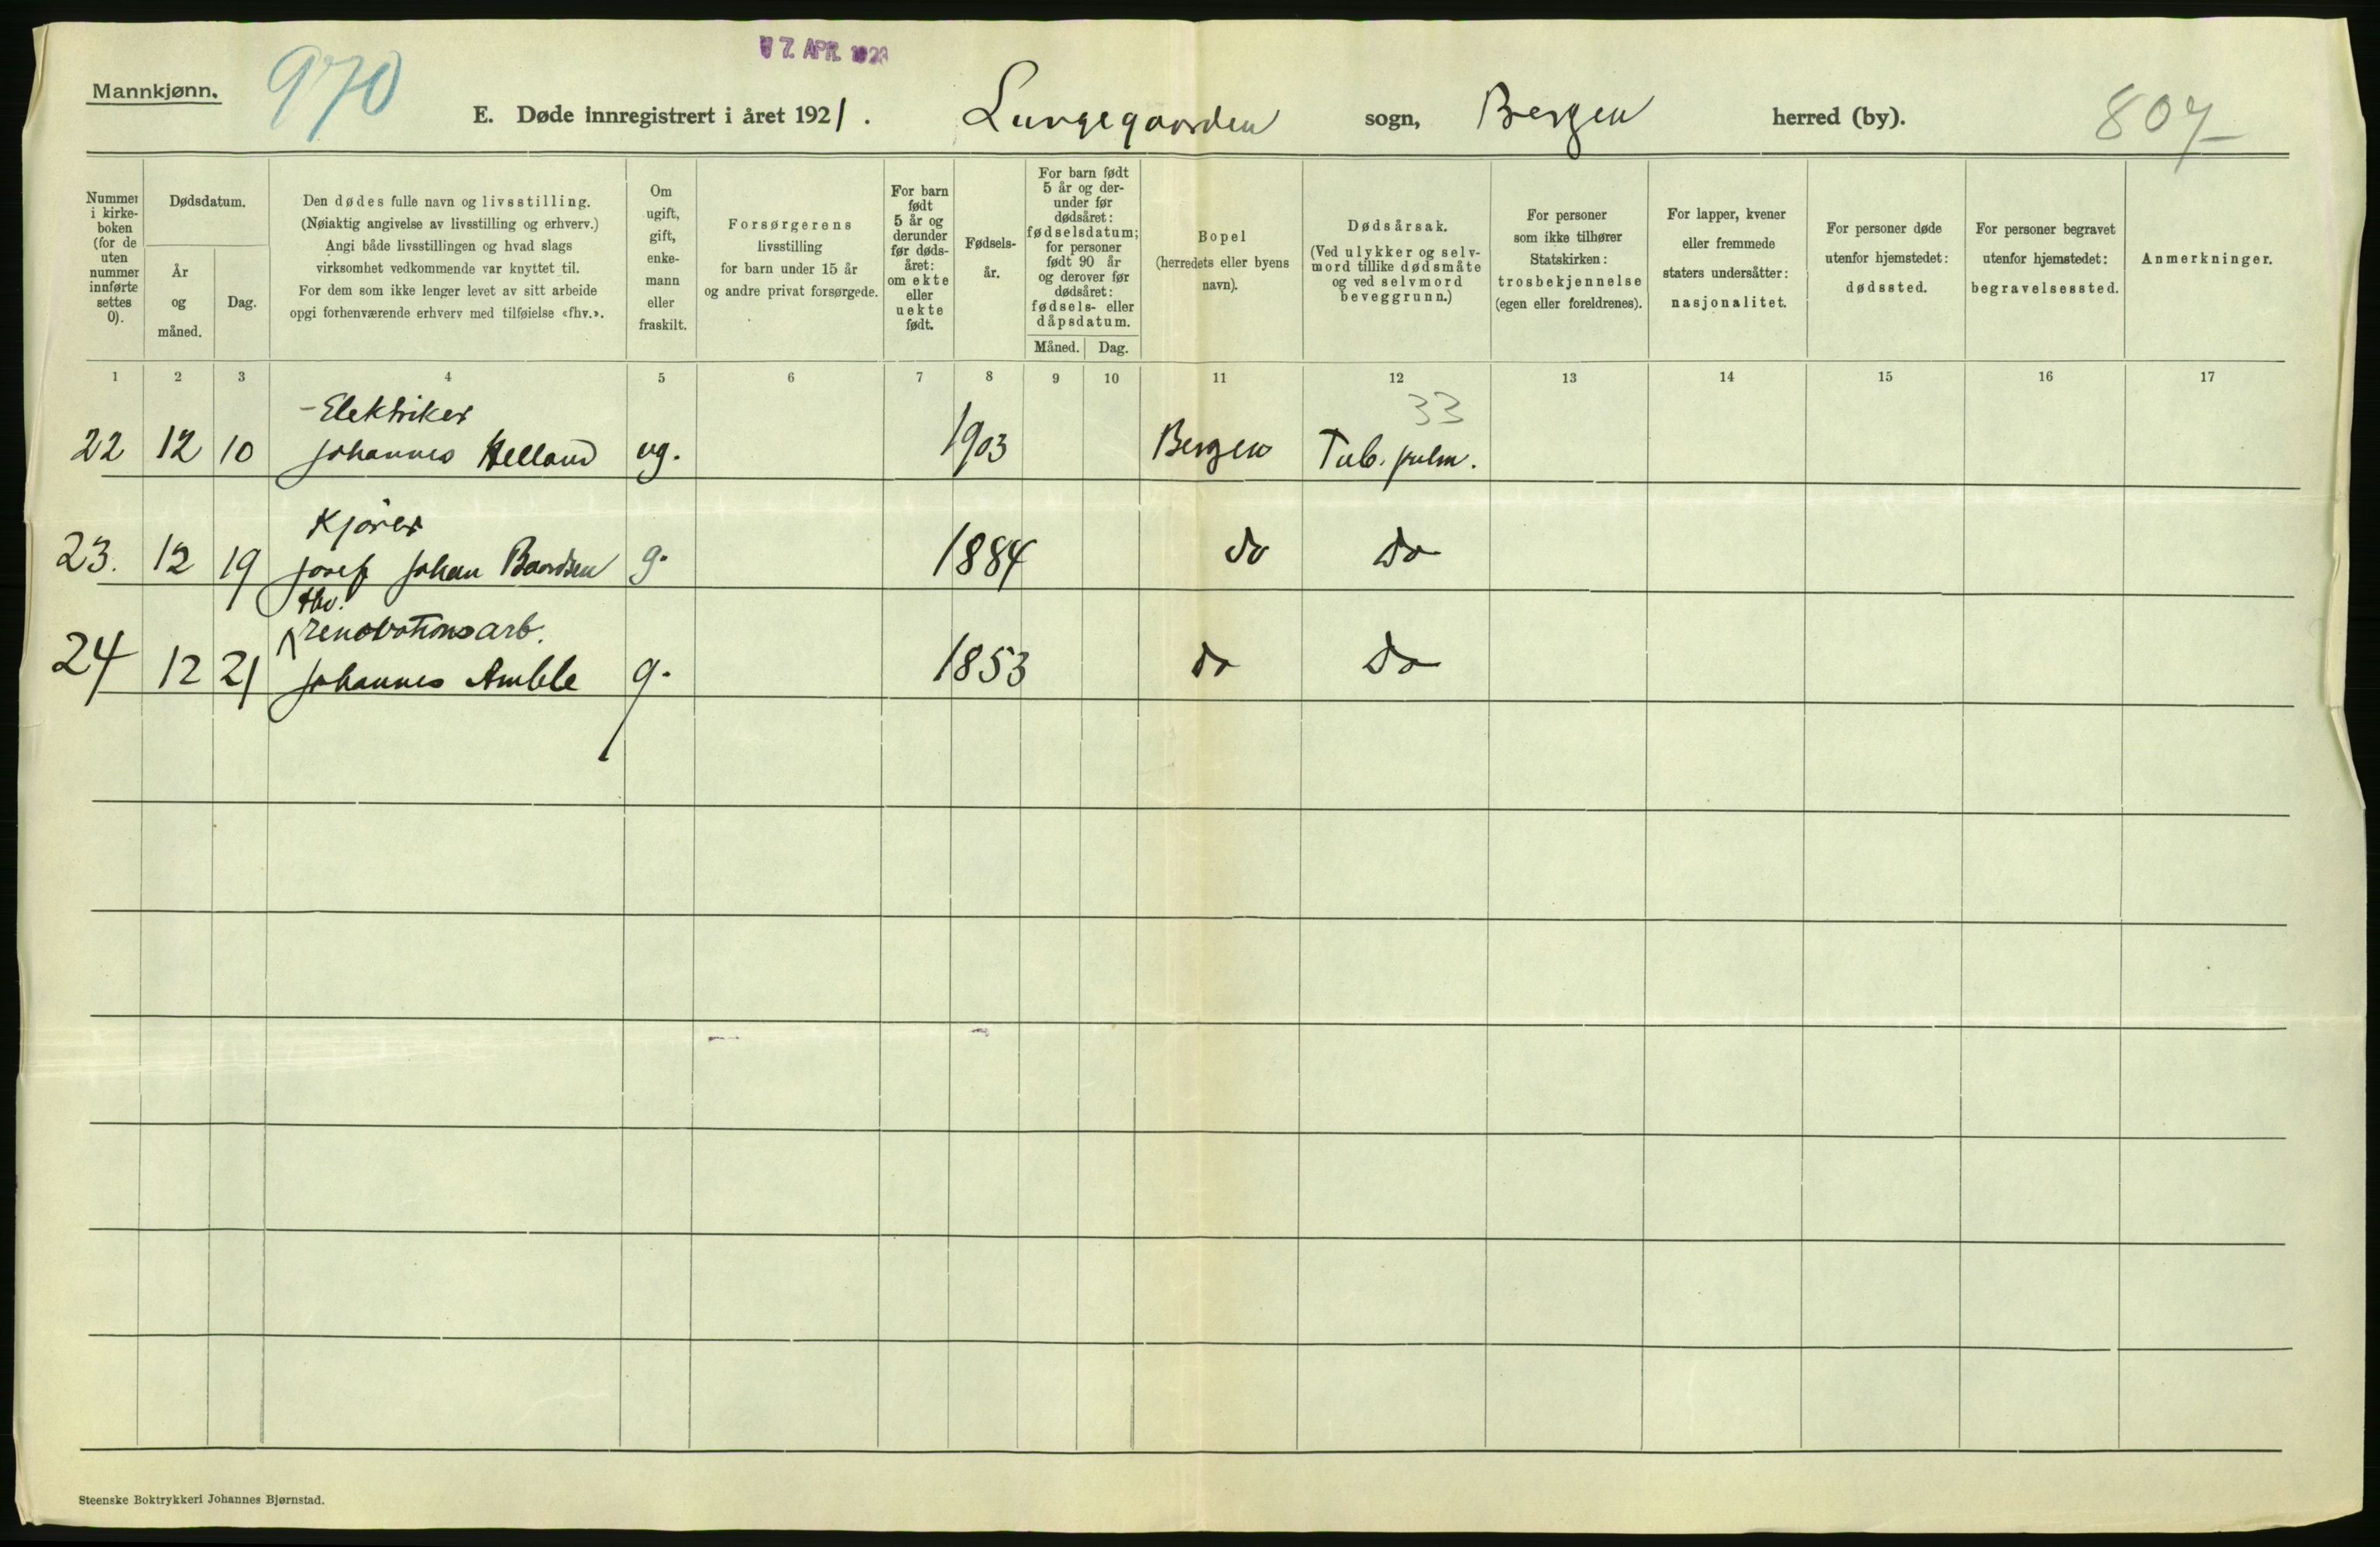 Mannkjønn.
970
7. APR. 192
E. Døde innregistrert i året 1921. Lungegaarden sogn, Bergen herred (by).
807
Nummer i kirkeboken (for de uten nummer innførte settes 0).
Dødsdatum.
År og måned.
Dag.
Den dødes fulle navn og livsstilling.
(Nøiaktig angivelse av livsstilling og erhverv.)
Angi både livsstillingen og hvad slags
virksomhet vedkommende var knyttet til.
For dem som ikke lenger levet av sitt arbeide
opgi forhenværende erhverv med tilføielse «fhv.».
Om ugift, gift, enkemann eller fraskilt.
Forsørgerens
livsstilling
for barn under 15 år
og andre privat forsørgede.
For barn født 5 år og derunder før dødsåret: om ekte eller uekte født.
Fødselsår.
For barn født 5 år og derunder før dødsåret: fødselsdatum; for personer født 90 år og derover før dødsåret: fødsels- eller dåpsdatum.
Måned. Dag.
Bopel
(herredets eller byens
navn).
Dødsårsak.
(Ved ulykker og selvmord tillike dødsmåte og ved selvmord beveggrunn.)
For personer
som ikke tilhører
Statskirken:
trosbekjennelse
(egen eller foreldrenes).
For lapper, kvener
eller fremmede
staters undersåtter:
nasjonalitet.
For personer døde
utenfor hjemstedet:
dødssted.
For personer begravet
utenfor hjemstedet:
begravelsessted.
Anmerkninger.
1 2 3 4 5 6 7 8 9 10 11 12 13 14 15 16 17
Elektriker 33
22 12 10 Johannes Helland ug. 1903 Bergen Tub. pulm.
Kjører
23. 12 19 Josef Johan Baardsen g. 1884 do do
fhv.
renovationsarb.
24 12 21 Johannes Amble g. 1853 do do
Steenske Boktrykkeri Johannes Bjørnstad.